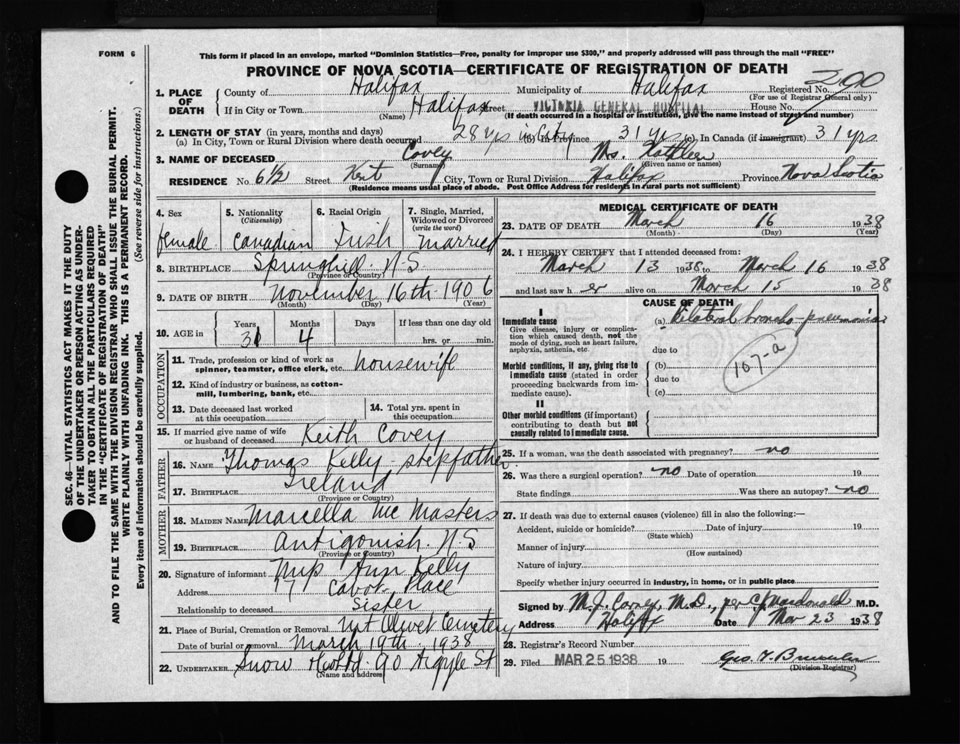 FORM 6
This form if placed in an envelope, marked "Dominion Statistics—Free, penalty for improper use $300," and properly addressed will pass through the mail "FREE"
PROVINCE OF NOVA SCOTIA—CERTIFICATE OF REGISTRATION OF DEATH
SEC. 46—VITAL STATISTICS ACT MAKES IT THE DUTY
OF THE UNDERTAKER OR PERSON ACTING AS UNDER-
TAKER TO OBTAIN ALL THE PARTICULARS REQUIRED
IN THE "CERTIFICATE OF REGISTRATION OF DEATH"
AND TO FILE THE SAME WITH THE DIVISION REGISTRAR WHO SHALL ISSUE THE BURIAL PERMIT.
WRITE PLAINLY WITH UNFADING INK. THIS IS A PERMANENT RECORD.
Every item of information should be carefully supplied. (See reverse side for instructions.)
1. PLACE OF DEATH
County of Halifax Municipality of Halifax Registered No. 290
(For use of Registrar General only)
If in City or Town Halifax Street VICTORIA GENERAL HOSPITAL House No.
(Name) (If death occurred in a hospital or institution, give the name instead of street and number)
2. LENGTH OF STAY (in years, months and days)
(a) In City, Town or Rural Division where death occurred 28 yrs in city (b) In Province 31 yrs (c) In Canada (if immigrant) 31 yrs
3. NAME OF DECEASED Covey Mrs. Kathleen
(Surname) (Given name or names)
RESIDENCE No. 6½ Street Kent City, Town or Rural Division Halifax Province Nova Scotia
(Residence means usual place of abode. Post Office Address for residents in rural parts not sufficient)
4. Sex female
5. Nationality (Citizenship) Canadian
6. Racial Origin Irish
7. Single, Married, Widowed or Divorced (write the word) married
8. BIRTHPLACE Springhill N.S
(Province or Country)
9. DATE OF BIRTH November 16th 1906
(Month) (Day) (Year)
10. AGE in Years 31 Months 4 Days If less than one day old hrs. or min.
OCCUPATION
11. Trade, profession or kind of work as spinner, teamster, office clerk, etc. housewife
12. Kind of industry or business, as cotton-mill, lumbering, bank, etc.
13. Date deceased last worked at this occupation
14. Total yrs. spent in this occupation
15. If married give name of wife or husband of deceased Keith Covey
FATHER
16. NAME Thomas Kelly - stepfather
17. BIRTHPLACE Ireland
(Province or Country)
MOTHER
18. MAIDEN NAME Marcella McMasters
19. BIRTHPLACE Antigonish. N.S
(Province or Country)
20. Signature of informant Mrs Ann Kelly
Address 7 Cabot Place
Relationship to deceased Sister
21. Place of Burial, Cremation or Removal Mt Olivet Cemetery
Date of burial or removal March 19th 1938
22. UNDERTAKER Snow & Co Ltd. 90 Argyle St
(Name and Address)
MEDICAL CERTIFICATE OF DEATH
23. DATE OF DEATH March 16 1938
(Month) (Day) (Year)
24. I HEREBY CERTIFY that I attended deceased from:
March 13 1938 to March 16 1938
and last saw her alive on March 15 1938
CAUSE OF DEATH
I
Immediate cause
Give disease, injury or complication which caused death, not the mode of dying, such as heart failure, asphyxia, asthenia, etc.
(a) Bilateral broncho-pneumonia
due to
107-a
Morbid conditions, if any, giving rise to immediate cause (stated in order proceeding backwards from immediate cause).
(b)
due to
(c)
II
Other morbid conditions (if important) contributing to death but not causally related to immediate cause.
25. If a woman, was the death associated with pregnancy? no
26. Was there a surgical operation? no Date of operation 19
State findings Was there an autopsy? no
27. If death was due to external causes (violence) fill in also the following:—
Accident, suicide or homicide? Date of injury 19
(State which)
Manner of injury
(How sustained)
Nature of injury
Specify whether injury occurred in industry, in home, or in public place
Signed by M.J. Carney, M.D., per C.J. Macdonald M.D.
Address Halifax Date Mar 23 1938
28. Registrar's Record Number
29. Filed MAR 25 1938 19
(Division Registrar)